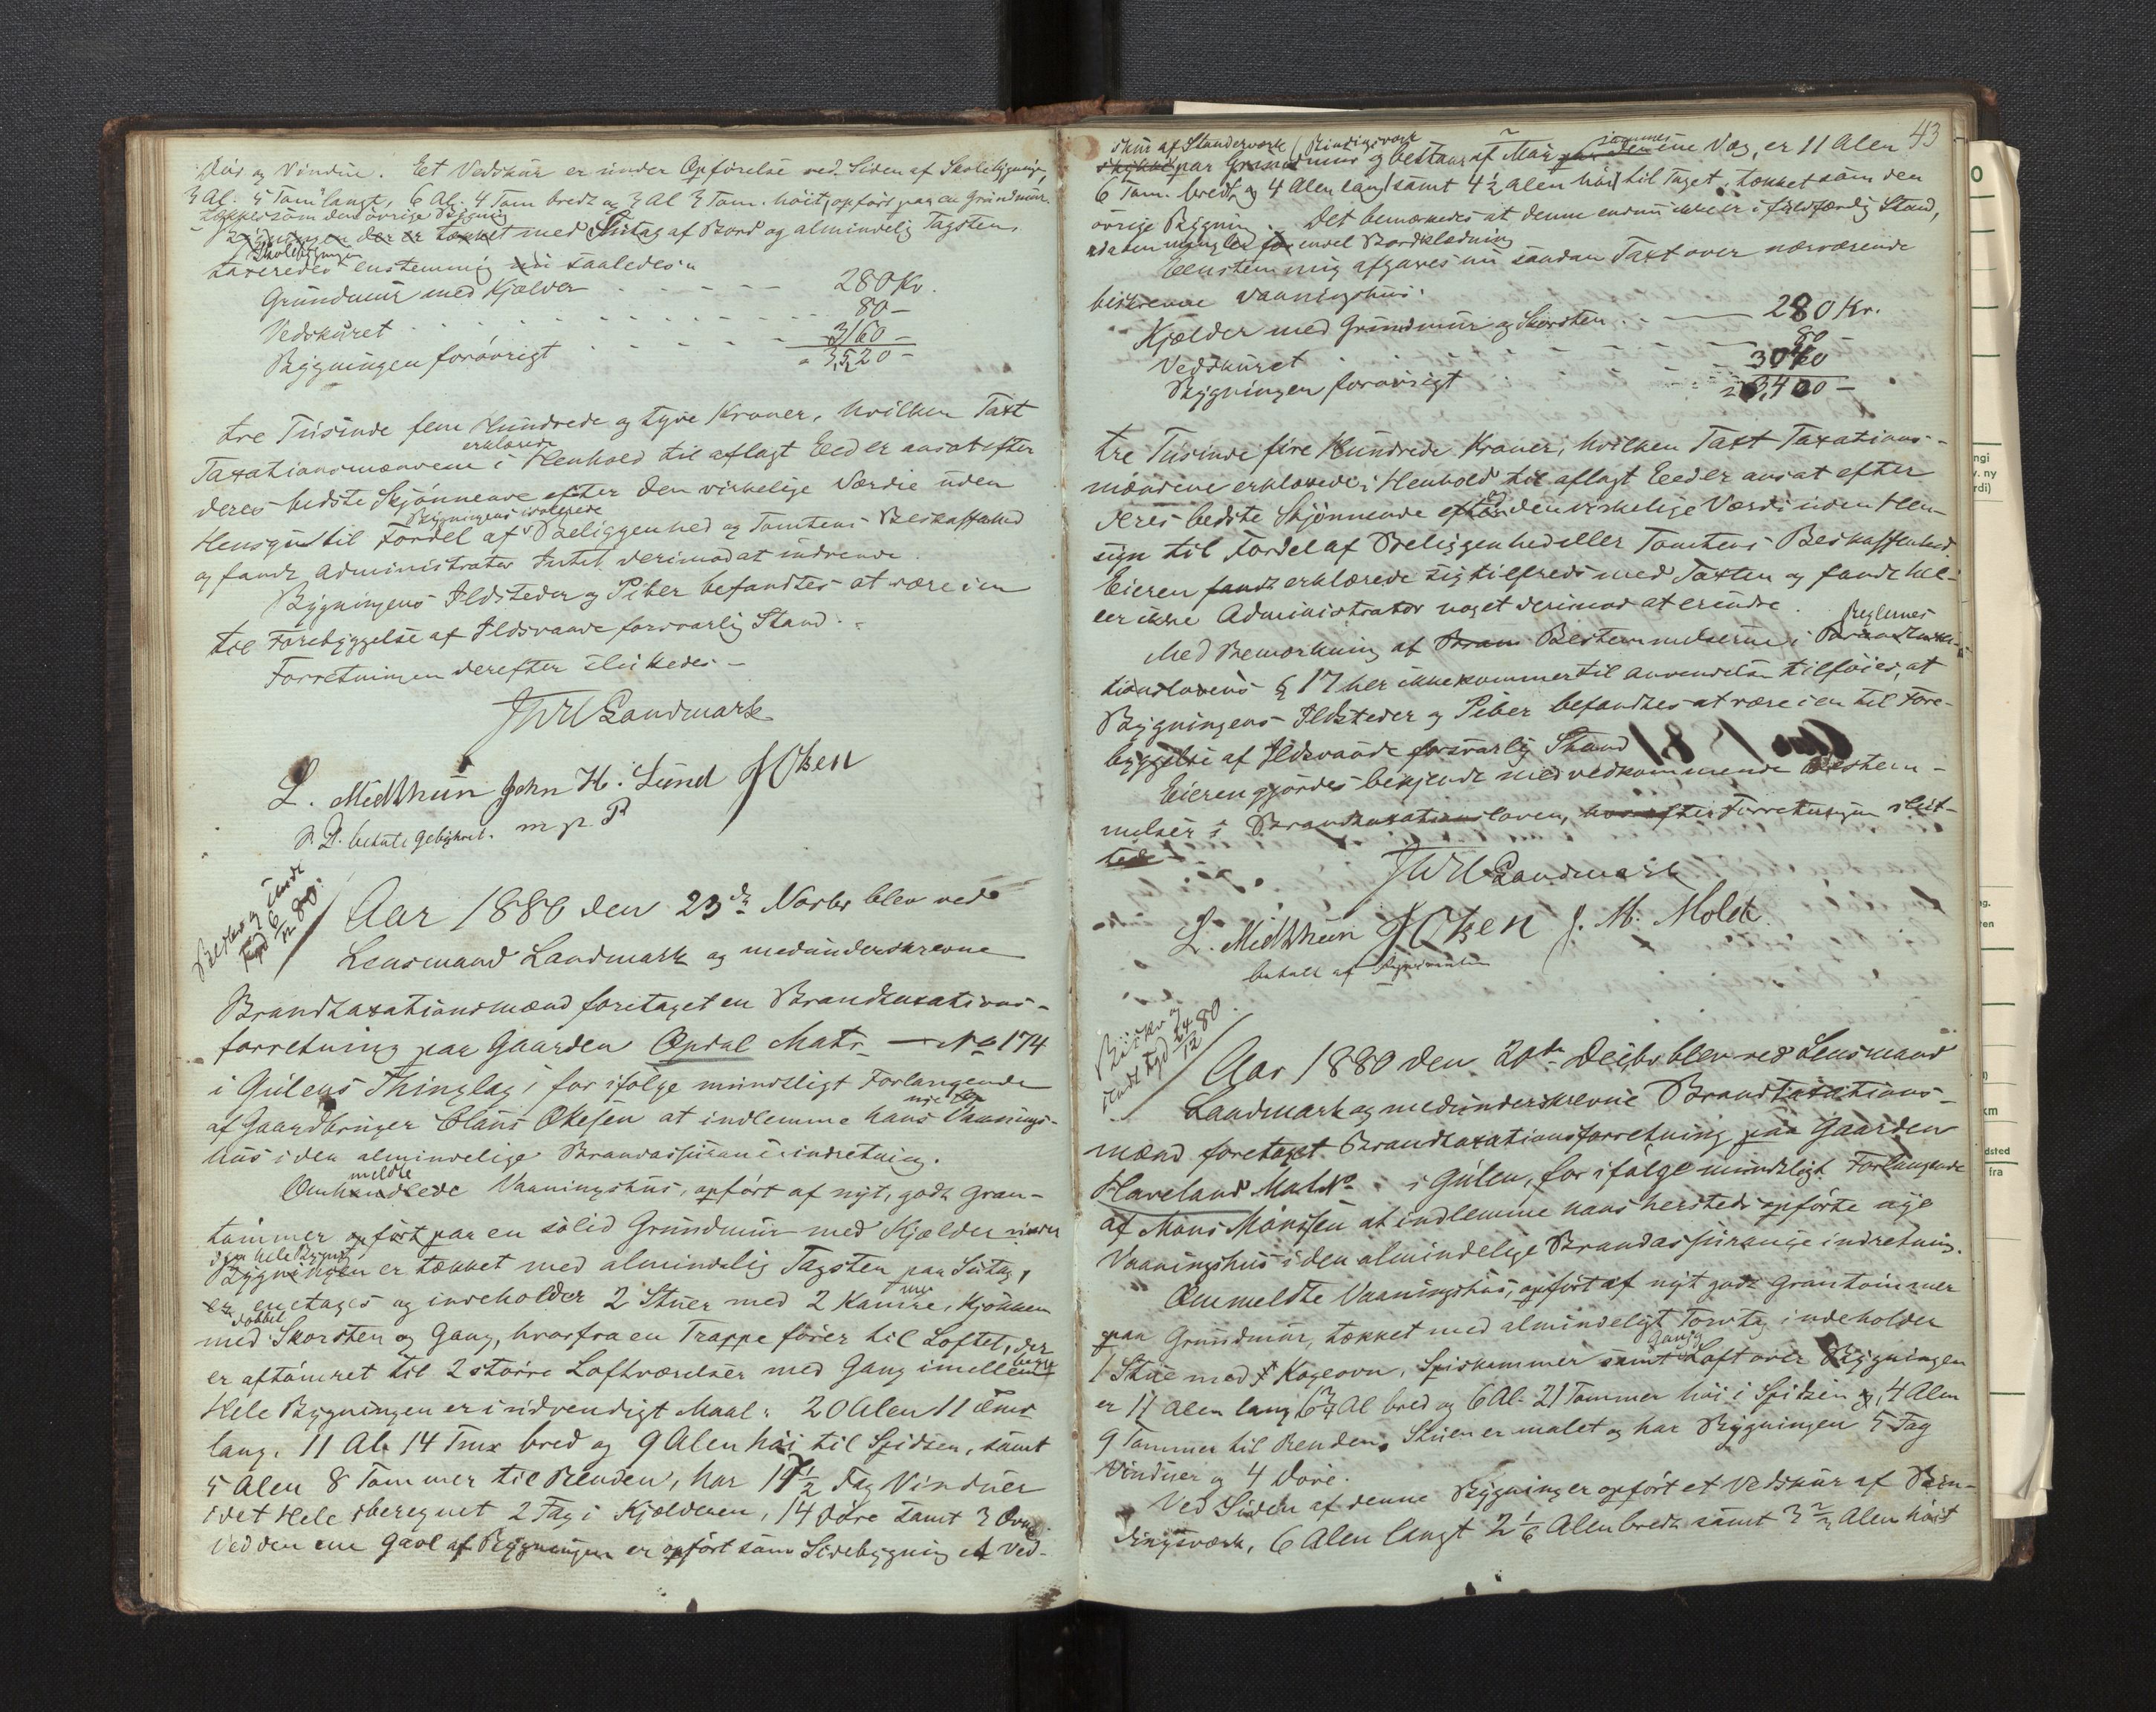 Dör og Vindue. Et Vedskur er under Opförelse ved Siden af Skolebygningen,
3 Al. 5 Tom langt, 6 Al. 4 Tom bredt og 3 Al 3 Tom. höit, opfört paa en Grundmur
tækket som den övrige Bygning
Bygningen der er tækket med Sutag af Bord og almindelig Tagsten.
Skolebygningen
taxeredes enstemmig nu saaledes:
Grundmur med Kjælder 280 Kr.
Vedskuret 80 —
Bygningen forövrigt 3160 —
3,520 —
tre Tusinde fem Hundrede og tyve Kroner, hvilken Taxt
erklærede
Taxationsmændene i Henhold til aflagt Eed er ansat efter
deres bedste Skjönnende efter den virkelige Værdie uden
Bygningens isolerede
Hensyn til Fordel af Beliggenhed og Tomtens Beskaffenhed
og fandt Administrator Intet derimod at indvende.
Bygningens Ildsteder og Piber befandtes at være i en
til Forebyggelse af Ildsvaade forsvarlig Stand.
Forretningen derefter sluttedes —
JWUlandmark
L. Midthun John H. Lund J Olsen
m. p. P
Aar 1880 den 23de Novbr blev ved
Lensmand Landmark og medunderskrevne
Brandtaxationsmænd foretaget en Brandtaxations-
forretning paa Gaarden Opdal Matr. — No 174
i Gulens Thinglag, for ifölge mundtligt Forlangende
nye
af Gaardbruger Claus Okesen at indlemme hans Vaanings-
hus i den almindelige Brandassuranceindretning.
meldte
Omhandlede Vaaningshus, opfört af nyt, godt Gran-
tömmer opfört paa en solid Grundmur med Kjælder under
den hele Bygning
Bygningen er tækket med almindelig Tagsten paa Sutag,
er enetages og indeholder 2 Stuer med 2 Kamre, Kjökken
dobbel
med Skorsten og Gang, hvorfra en Trappe förer til Loftet, der
er aftömret til 2 större Loftværelser med Gang imellem
Hele Bygningen er i udvendigt Maal: 20 Alen 11 Tmr
lang, 11 Al. 14 Tmr bred og 9 Alen höi til Spidsen, samt
5 Alen 8 Tommer til Renden, har 17½ Fag Vinduer
i det Hele iberegnet 2 Fag i Kjælderen, 14 Döre samt 3 Ovne
Ved den ene Gavl af Bygningen er opfört som Sidebygning et Ved-
43
skur af Standerværk (Bindingsværk
skjelnet paa Grundmur og bestaar af Mur paa den ene Væg, er 11 Alen
6 Tom. bredt og 4 Alen langt samt 4½ Alen höit til Taget, tækket som den
övrige Bygning. Det bemærkedes at denne endnu ikke er i fuldfærdig Stand,
idet den mangler for endel Bordklædning
Eenstemmig afgaves nu saadan Taxt over nærværende
beskrevne Vaaningshus:
Kjælder med Grundmur og Skorsten 280 Kr.
Vedskuret 80
Bygningen forövrigt 3040
3,400 —
tre Tusinde fire Hundrede Kroner, hvilken Taxt Taxations-
mændene erklærede i Henhold til aflagt Eed er ansat efter
deres bedste Skjönnende efter den virkelige Værdi uden Hen-
syn til Fordel af Beliggenhed eller Tomtens Beskaffenhed.
Eieren fandt erklærede sig tilfreds med Taxten og fandt hel-
ler ikke Administrator noget derimod at erindre.
Reglernes
Med Bemærkning af Bram Bestemmelserne i Brandtaxa-
tionslovens § 17 her ikke kommer til Anvendelse tilföies, at
Bygningens Ildsteder og Piber befandtes at være i en til Fore-
byggelse af Ildsvaade forsvarlig Stand
Eieren gjordes bekjendt med vedkommende Bestem-
melser i Brandtaxationsloven, hvorefter Forretningen slut-
tede
JWUlandmark
L. Midthun J Olsen J. M. Molde
betalt af
Aar 1880 den 20de Decbr blev ved Lensmand
Landmark og medunderskrevne Brandtaxations-
mænd foretaget Brandtaxationsforretning paa Gaarden
Haveland Mat No i Gulen, for ifölge mundtligt Forlangende
af Mons Monssen at indlemme hans hersteds opförte nye
Vaaningshus i den almindelige Brandassuranceindretning.
Ommeldte Vaaningshus, opfört af nyt godt Grantömmer
paa Grundmur, tækket med almindeligt Torvtag indeholder
Gang og
1 Stue med Kogeovn, Spiskammer samt Loft over Bygningen
er 11 Alen lang, 6¾ Al bred og 6 Al. 21 Tommer höi i Spidsen og 4 Alen
9 Tommer til Renden. Stuen er malet og har Bygningen 5 Fag
Vinduer og 4 Döre.
Ved Siden af denne Bygning er opfört et Vedskur af Bin-
dingsværk, 6 Alen langt 2 1/6 Alen bredt samt 3 2/3 Alen höit